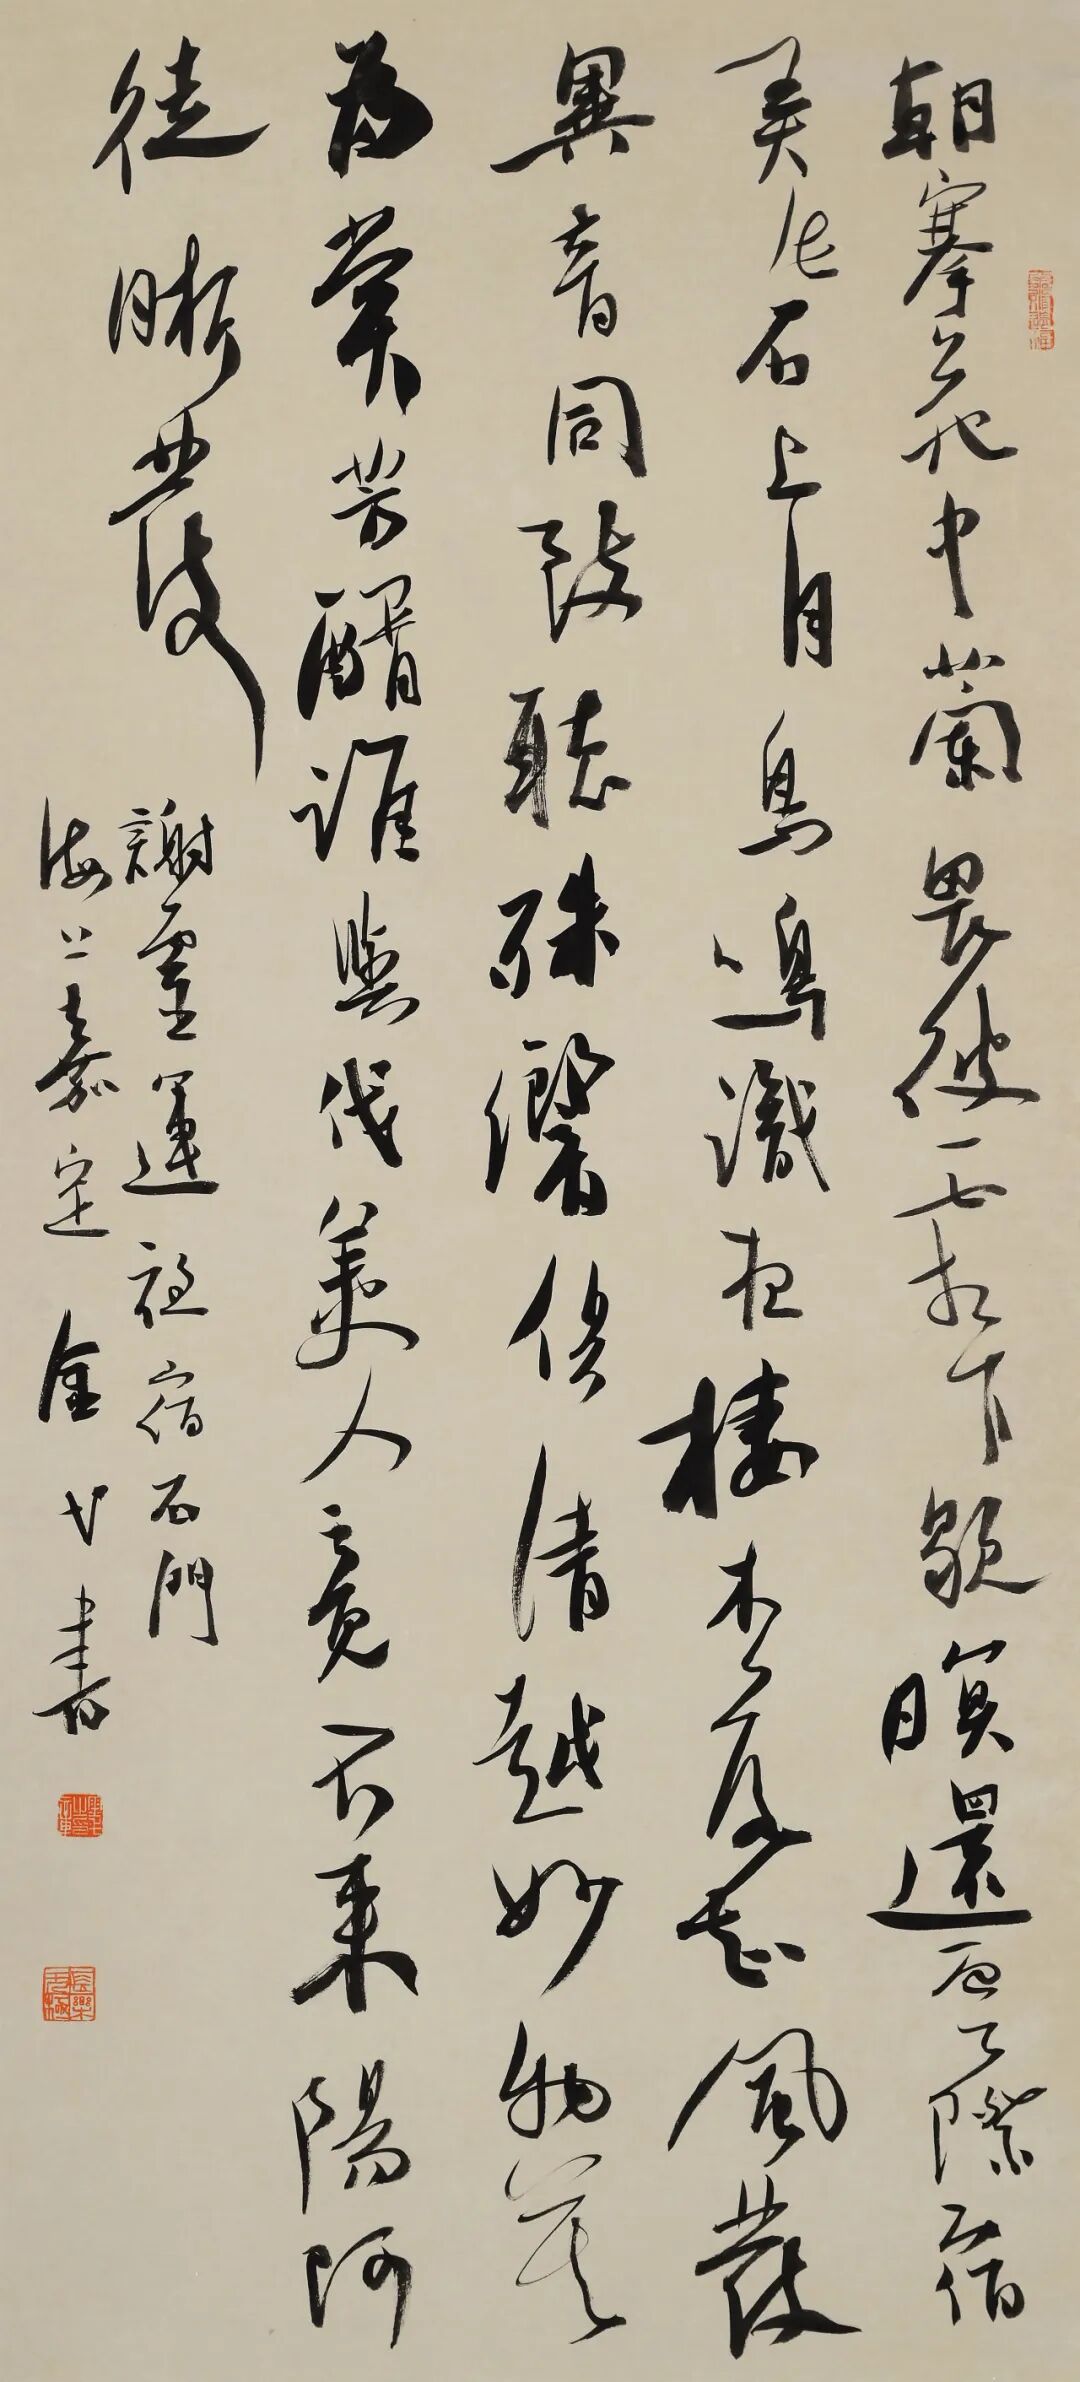 朝搴苑中蘭畏彼霜下歇暝還雲際宿
弄此石上月鳥鳴識夜棲木落知風發
異音同致聽殊響俱清越妙物莫
為賞芳醑誰與伐美人竟不來陽阿
徒晞髮
謝靈運夜宿石門
海上嘉定金弋書